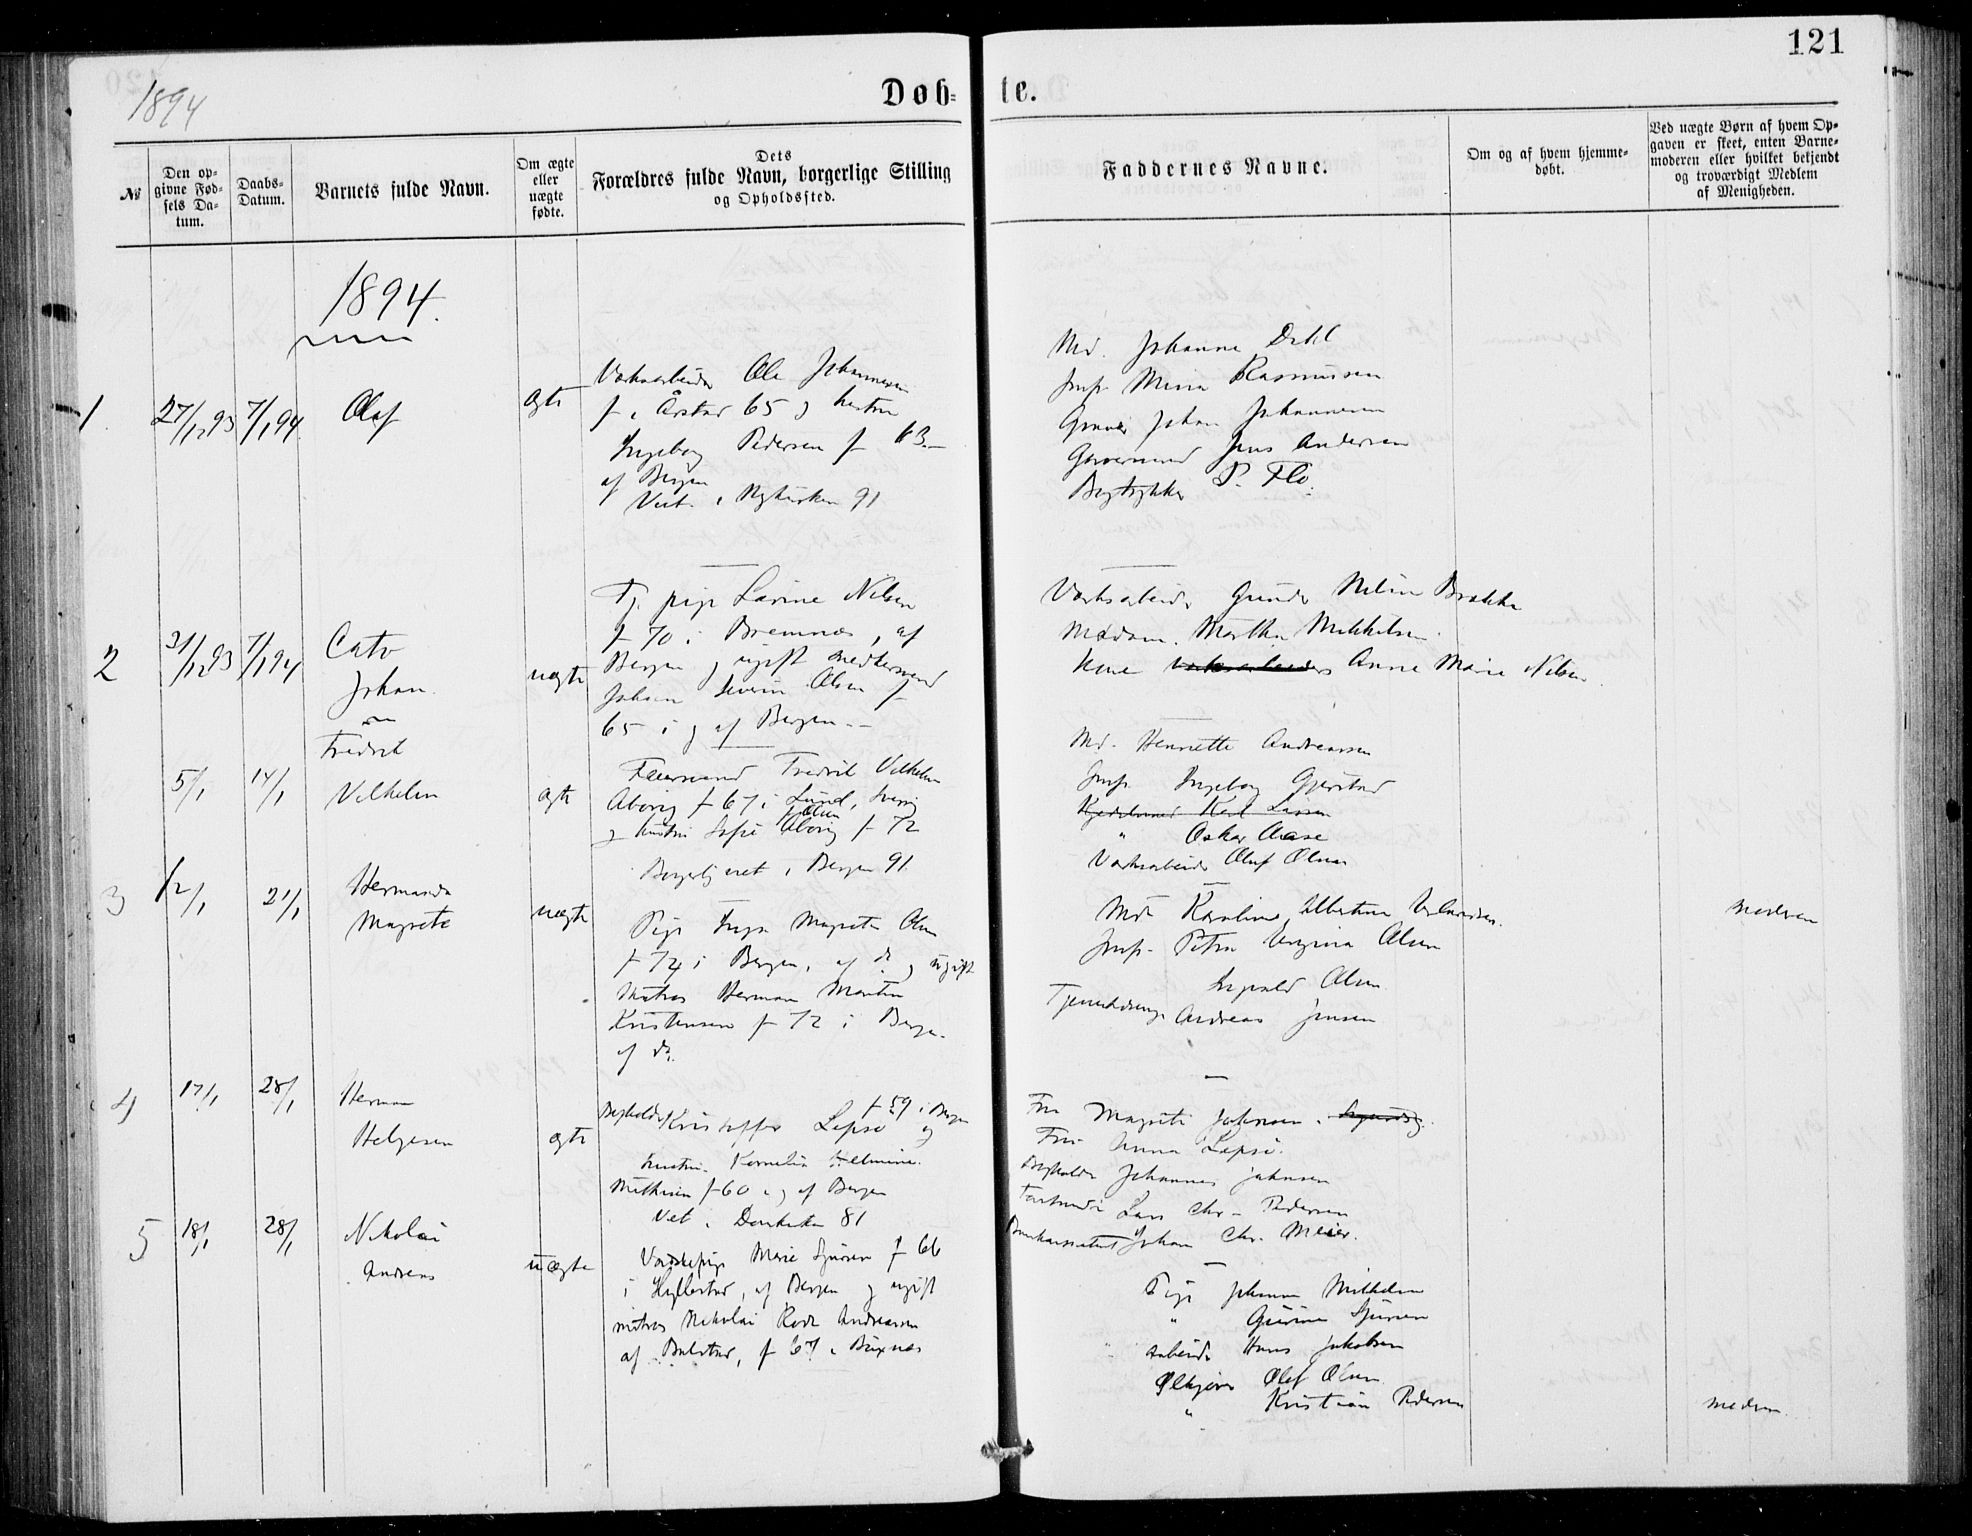 121
1894
Døb-
te.
№
Den opgivne Fødsels Datum.
Daabs-Datum.
Barnets fulde Navn.
Om ægte eller uægte fødte.
Dets Forældres fulde Navn, borgerlige Stilling og Opholdssted.
Faddernes Navne.
Om og af hvem hjemmedøbt.
Ved uægte Børn af hvem Opgaven er skeet, enten Barnemoderen eller hvilket bekjendt og troværdigt Medlem af Menigheden.
1894.
1
27/12 93
7/1 94
Olaf
ægte
Værksarbeider Ole Johannesen
f i Årstad 65 og hustru
Ingeborg Pedersen f 63
af Bergen
Viet i Nykirken 91
Md. Johanne Dahl
Jmf. Mina Rasmussen
Johan Johannesen
Jens Andersen
Bogtrykker P. Flo.
2
31/12 93
7/1 94
Cato
Johan
uægte
Tj. pige Larine Nilsen
f 70 i Bremnes, af
Bergen og ugift
Johan Severin Olsen f
65 i og af Bergen
Værksarbeider Gunder Nilsen Brakke
Madam Martha Mikkelsen
Kone Anne Marie Nilsen
5/1
14/1
Fredrik
Vilhelm
ægte
Fredrik Vilhelm
Åberg f 67 i Lund, Sverig
og hustru Sofie Åberg f. Olsen f 72
Borgerlj viet i Bergen 91
Md. Henriette Andreassen
Jmf. Ingeborg Gjerstad
Karl Larsen
" Oskar Aase
Værksarbeider Oluf Olsen
3
12/1
21/1
Hermanda
Magrete
uægte
Pige Inga Magrete Olsen
f 74 i Bergen, af do og ugift
Matros Herman Martin
Kristensen f 72 i Bergen
af do.
Md. Karoline Albertine
Jmf. Petra Olsen
Olsen
Tjenestedreng Andreas Jensen
moderen
4
17/1
28/1
Herman
Helgesen
ægte
Bogholder Kristoffer Lepsø f 59 i Bergen og
hustru Kornelia Helmine
Mathisen f 60 i og af Bergen
Viet i Domkirken 81
Fru Magrete Johnsen
Fru Anna Lepsø.
Bogholder Johannes Johnsen
Lars Chr. Pedersen
Johan Chr. Meier.
5
18/1
28/1
Nikolai
Andreas
uægte
Vaskepige Marie Sjursen f 66
i Hyllestad, af Bergen og ugift
matros Nikolai Rode Andreassen
af Balestad, f 67 i Buxnes
Pige Johanne Mikkelsen
" Gurine Sjursen
Arbeider Hans Jakobsen
Ølkjører Olaf Olsen
" Kristian Pedersen
moderen